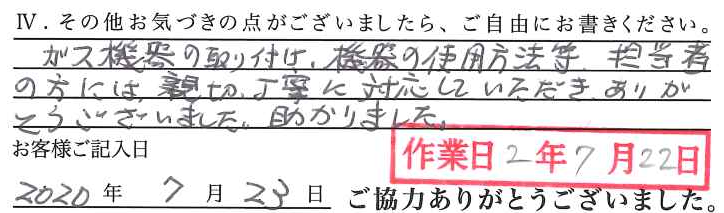 Ⅳ．その他お気づきの点がございましたら、ご自由にお書きください。
ガス機器の取り付け、機器の使用方法等、担当者
の方には、親切、丁寧に対応していただき、ありが
とうございました。助かりました。
お客様ご記入日
作業日2年7月22日
2020年 7月23日 ご協力ありがとうございました。